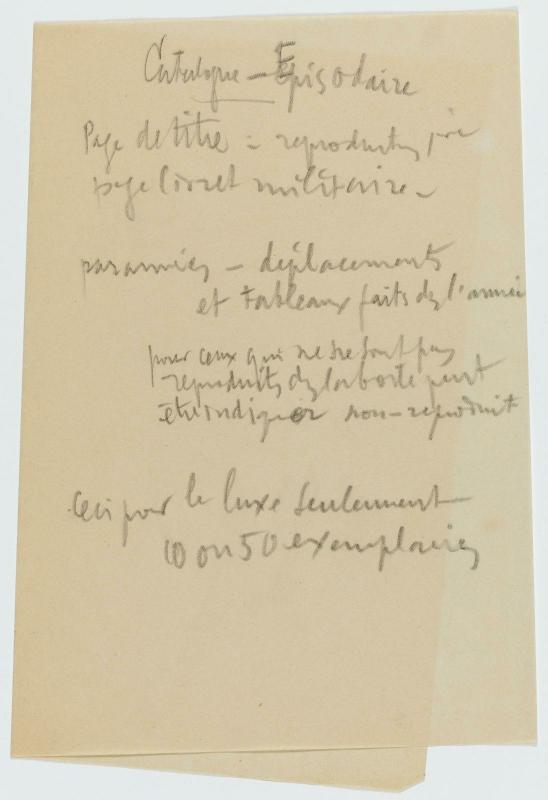 Catalogue — Episodaire
Page de titre = reproduction 1ère
page livret militaire —
par années — déplacements
et tableaux faits ds l'année
pour ceux qui ne seront pas
reproduits ds la boite peut
être indiquer non-reproduit
Ceci pour le luxe seulement
ou 50 exemplaires